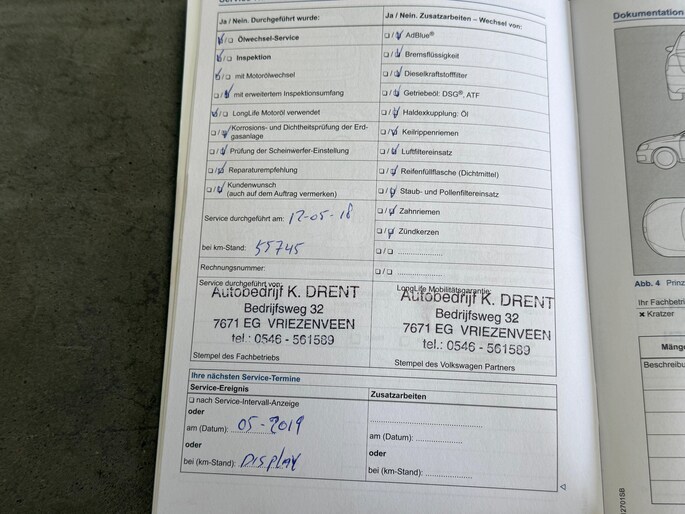 Ja / Nein. Durchgeführt wurde:
Ölwechsel-Service
Inspektion
mit Motorölwechsel
mit erweitertem Inspektionsumfang
LongLife Motoröl verwendet
Korrosions- und Dichtheitsprüfung der Erd-
gasanlage
Prüfung der Scheinwerfer-Einstellung
Reparaturempfehlung
Kundenwunsch
(auch auf dem Auftrag vermerken)
Service durchgeführt am: 17-05-18
bei km-Stand: 55745
Rechnungsnummer:
Service durchgeführt von:
Autobedrijf K. DRENT
Bedrijfsweg 32
7671 EG VRIEZENVEEN
tel.: 0546 - 561589
Stempel des Fachbetriebs
Ja / Nein. Zusatzarbeiten – Wechsel von:
AdBlue®
Bremsflüssigkeit
Dieselkraftstofffilter
Getriebeöl: DSG®, ATF
Haldexkupplung: Öl
Keilrippenriemen
Luftfiltereinsatz
Reifenfüllflasche (Dichtmittel)
Staub- und Pollenfiltereinsatz
Zahnriemen
Zündkerzen
LongLife Mobilitätsgarantie:
Autobedrijf K. DRENT
Bedrijfsweg 32
7671 EG VRIEZENVEEN
tel.: 0546 - 561589
Stempel des Volkswagen Partners
Ihre nächsten Service-Termine
Service-Ereignis
nach Service-Intervall-Anzeige
oder
am (Datum): 05-2019
oder
bei (km-Stand): DISPLAY
Zusatzarbeiten
am (Datum):
oder
bei (km-Stand):
Dokumentation
Abb. 4
Ihr Fachbetri
× Kratzer
Mänge
Beschreibu